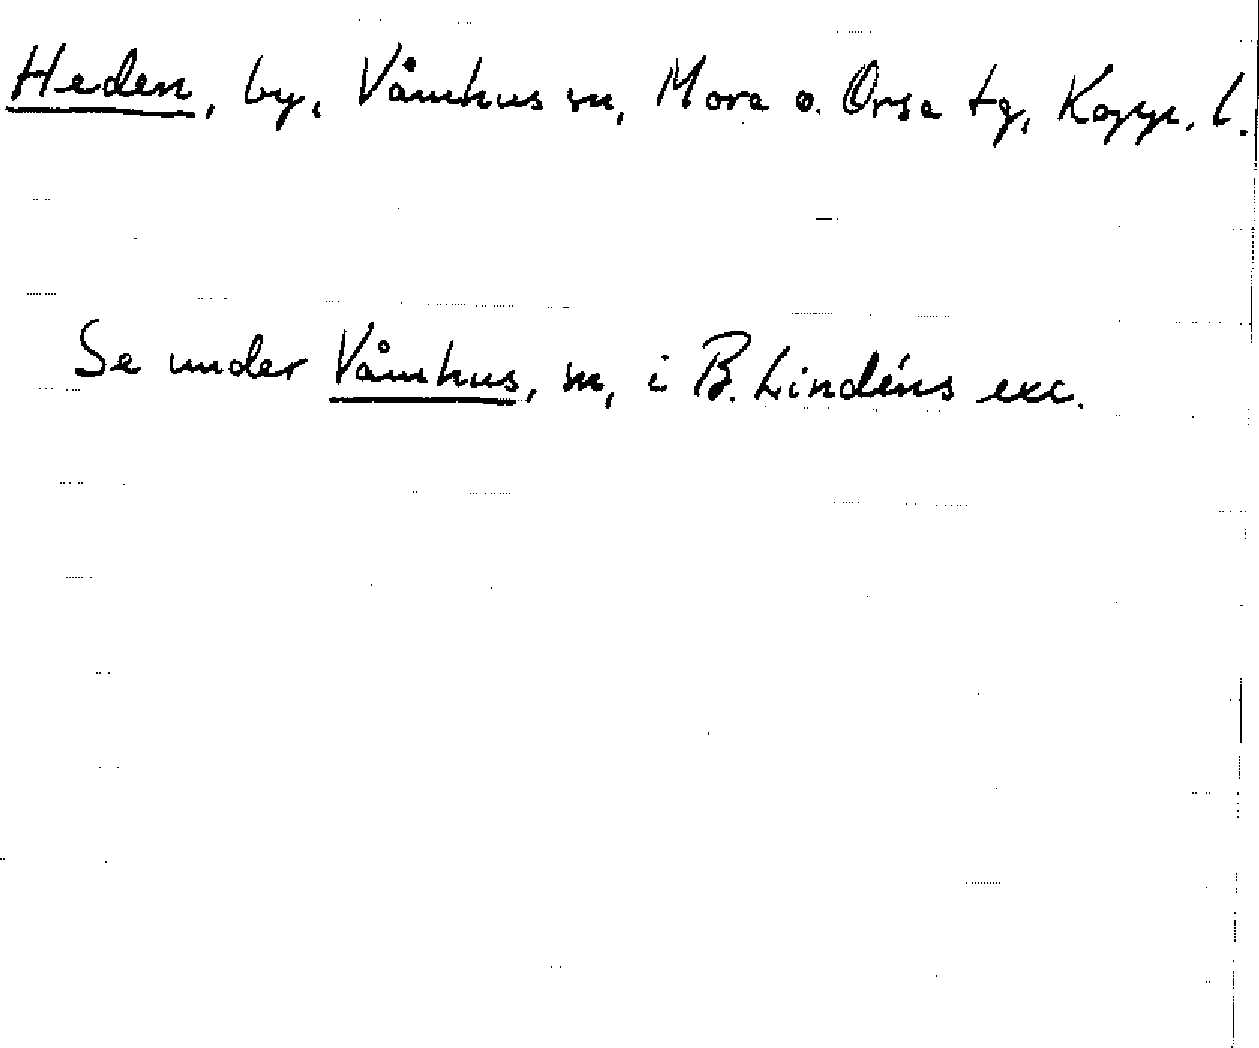 Heden, by, Våmhus sn, Mora o. Orsa tg, Kopp. l.
Se under Våmhus, sn, i B. Lindéns exc.